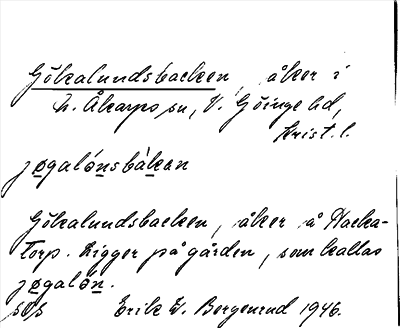 Gökalundsbacken, åker i
N. Åkarps sn, V. Göinge hd,
Krist. l.
jøgalónsbàkan
Gökalundsbacken, åker å Hacka-
torp. Ligger på gården, som kallas
jøgalón.
Erik W. Bergenrud 1946.